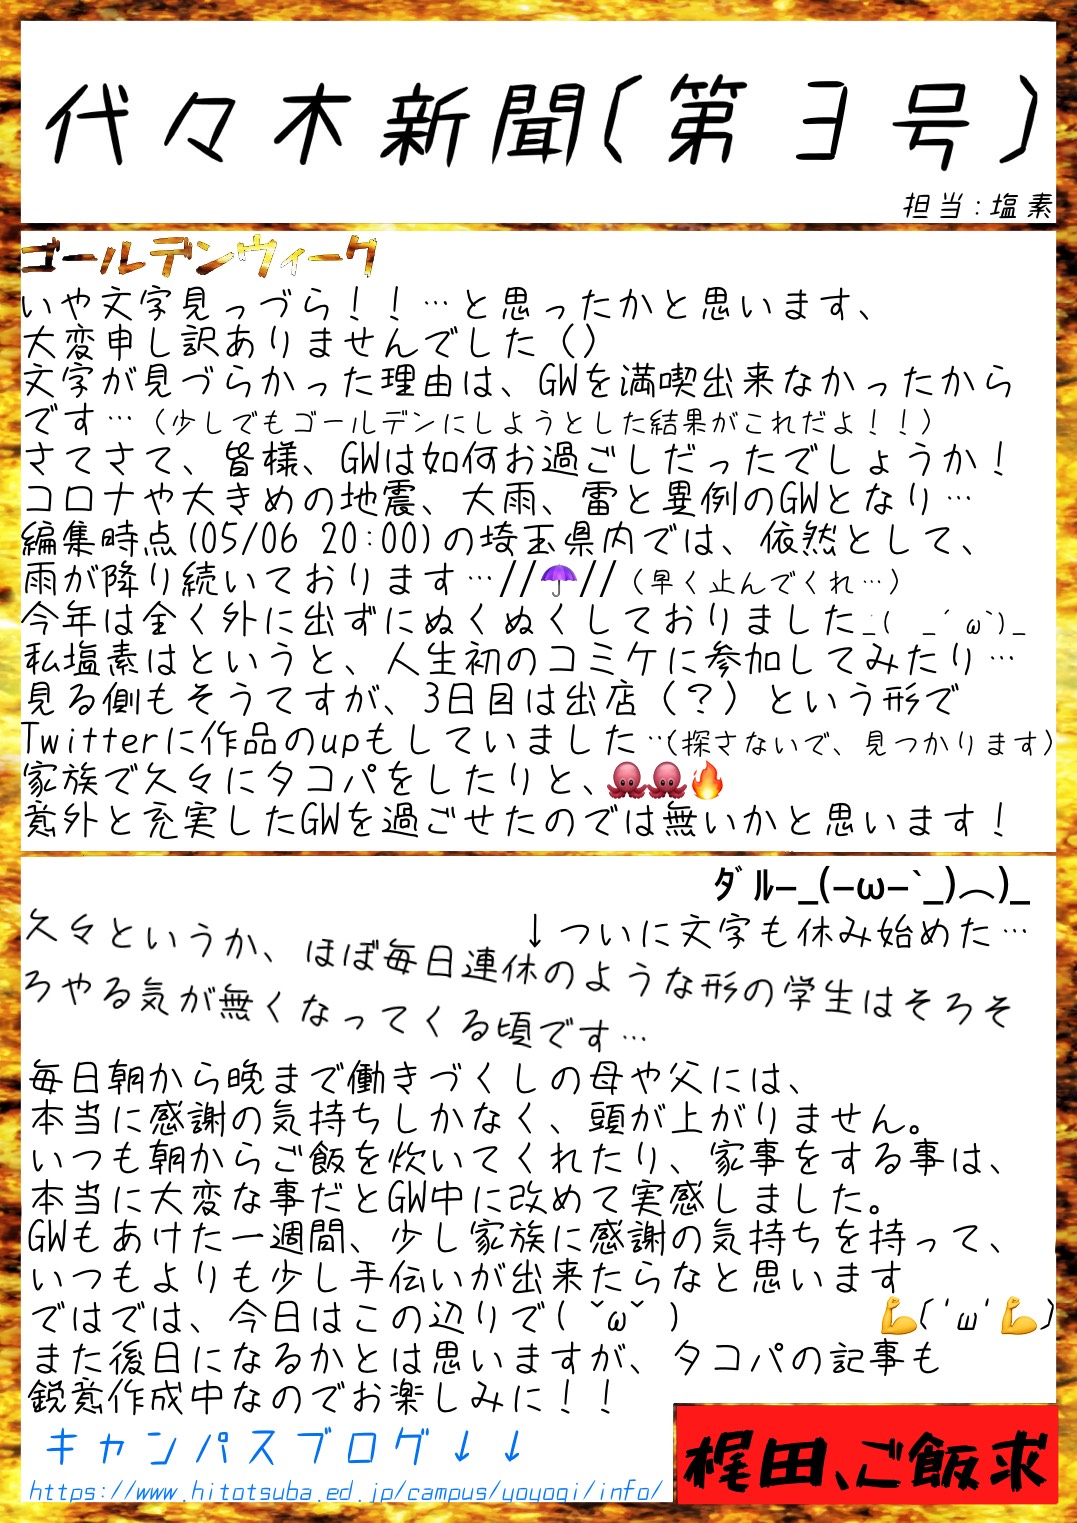 代々木新聞(第3号)
担当:塩素
ゴールデンウィーク
いや文字見っづら!!…と思ったかと思います、
大変申し訳ありませんでした()
文字が見づらかった理由は、GWを満喫出来なかったから
です…(少しでもゴールデンにしようとした結果がこれだよ!!)
さてさて、皆様、GWは如何お過ごしだったでしょうか!
コロナや大きめの地震、大雨、雷と異例のGWとなり…
編集時点(05/06 20:00)の埼玉県内では、依然として、
雨が降り続いております…//☂//(早く止んでくれ…)
今年は全く外に出ずにぬくぬくしておりました_( _ ´ω`)_
私塩素はというと、人生初のコミケに参加してみたり…
見る側もそうてすが、3日目は出店(?)という形で
Twitterに作品のupもしていました…(探さないで、見つかります)
家族で久々にタコパをしたりと、🐙🐙🔥
意外と充実したGWを過ごせたのでは無いかと思います!
ダル−_(−ω−`_)⌒)_
↓ついに文字も休み始めた…
久々というか、ほぼ毎日連休のような形の学生はそろそ
ろやる気が無くなってくる頃です…
毎日朝から晩まで働きづくしの母や父には、
本当に感謝の気持ちしかなく、頭が上がりません。
いつも朝からご飯を炊いてくれたり、家事をする事は、
本当に大変な事だとGW中に改めて実感しました。
GWもあけた一週間、少し家族に感謝の気持ちを持って、
いつもよりも少し手伝いが出来たらなと思います
ではでは、今日はこの辺りで(˘ω˘) 💪('ω'💪)
また後日になるかとは思いますが、タコパの記事も
鋭意作成中なのでお楽しみに!!
キャンパスブログ↓↓
https://www.hitotsuba.ed.jp/campus/yoyogi/info/
梶田、ご飯求